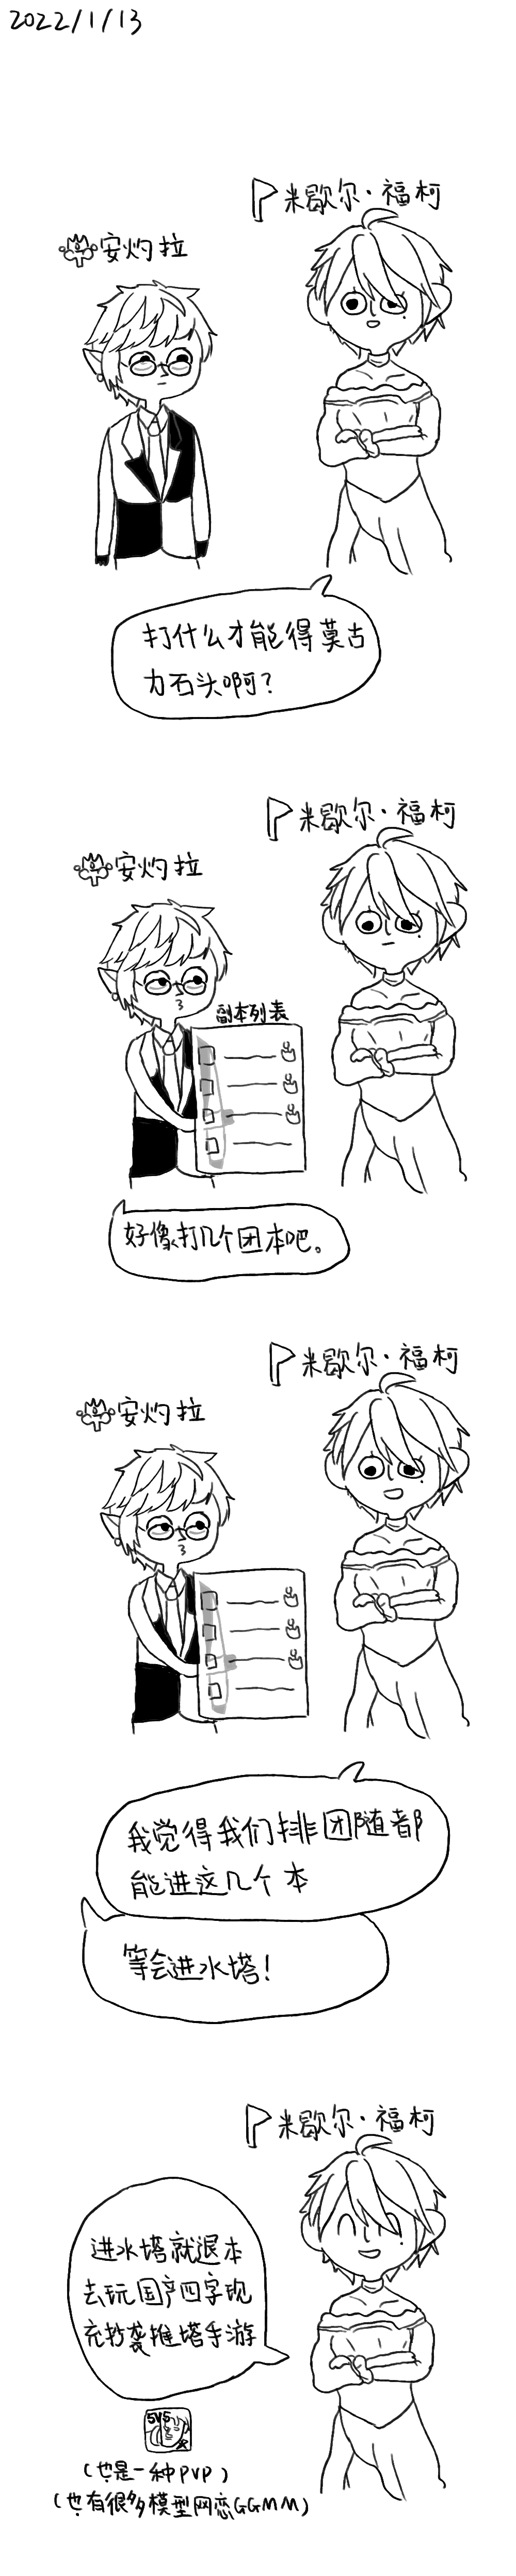 2022/1/13
米歇尔·福柯
安灼拉
打什么才能得莫古
力石头啊?
米歇尔·福柯
安灼拉
副本列表
好像打几个团本吧。
米歇尔·福柯
安灼拉
我觉得我们排团随都
能进这几个本
等会进水塔!
米歇尔·福柯
进水塔就退本
去玩国产四字现
充抄袭推塔手游
5V5
(也是一种PVP)
(也有很多模型网恋GGMM)